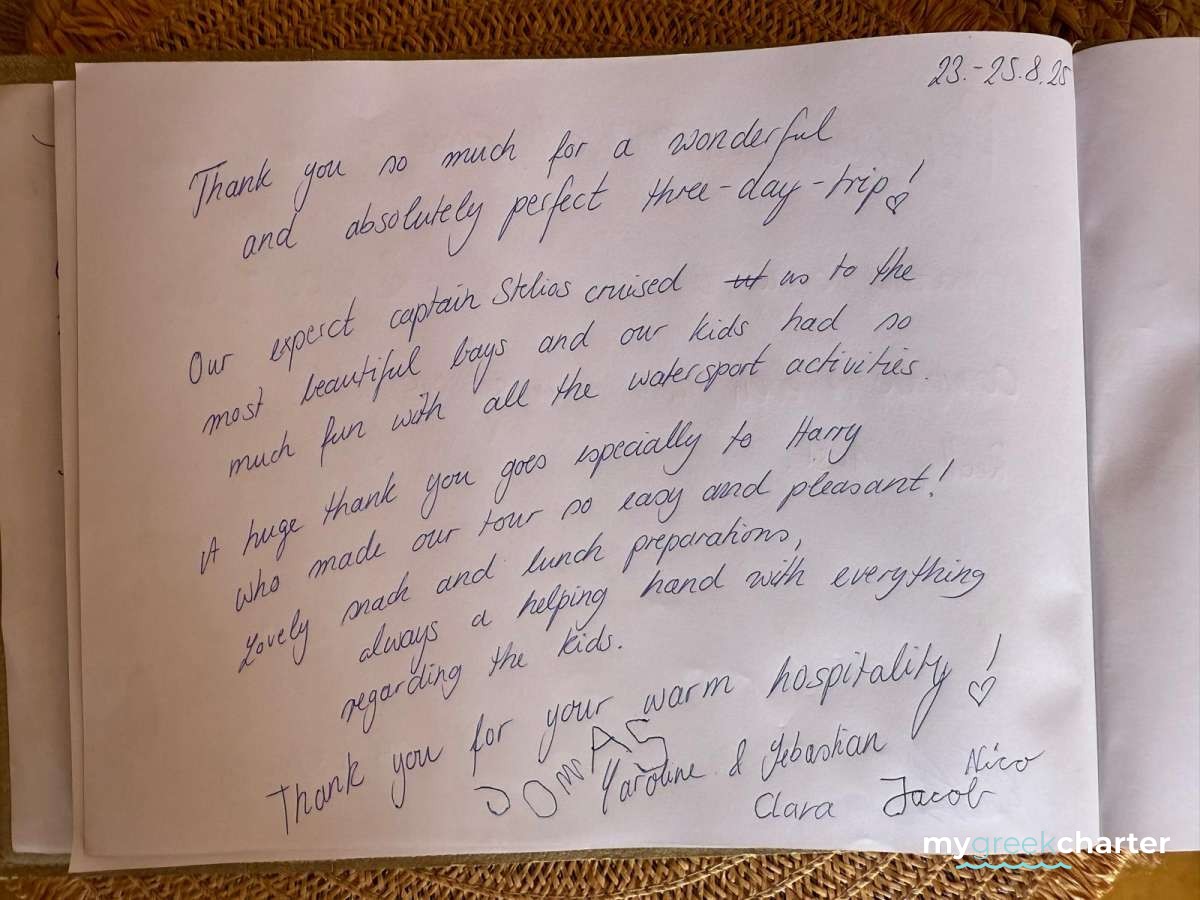 23.-25.8.25
Thank you so much for a wonderful
and absolutely perfect three-day-trip!♡
Our experct captain Stelios cruised us to the
most beautiful bays and our kids had so
much fun with all the watersport activities.
A huge thank you goes especially to Harry
who made our tour so easy and pleasant!
Lovely snack and lunch preparations,
always a helping hand with everything
regarding the kids.
Thank you for your warm hospitality!♡
Karoline & Sebastian
Clara Jacob Nico
mygreekcharter